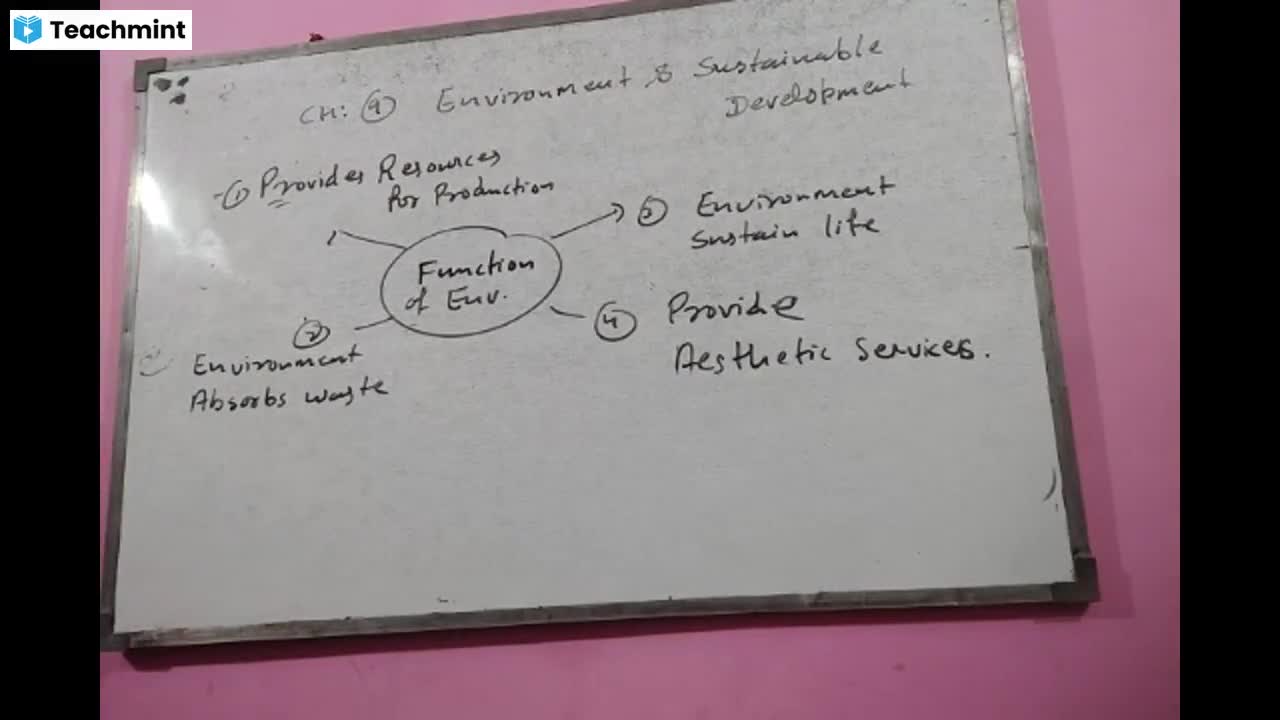 Teachmint
CH: 9 Environment & Sustainable
Development
① Provides Resources
for Production
③ Environment
Sustain life
Function
of Env.
② Environment
Absorbs waste
④ Provide
Aesthetic Services.